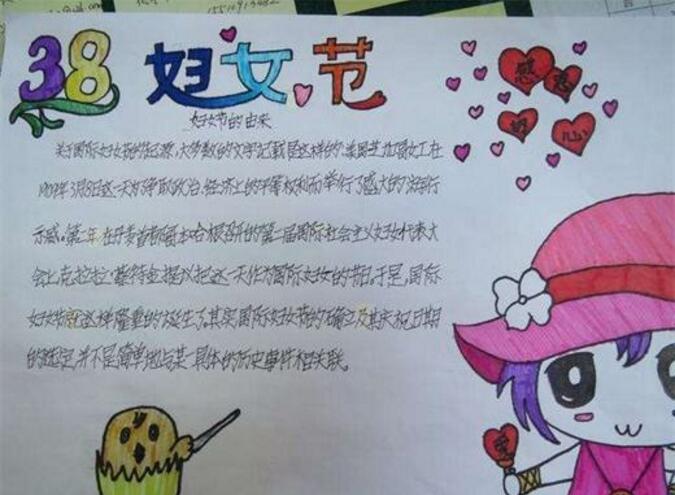 38 妇女节
妇女节的由来
关于国际妇女节的起源,大多数的文字记载是这样的:美国芝加哥女工在
1909年3月8日这一天为争取政治、经济上的平等权利而举行了盛大的游行
示威。第二年在丹麦首都哥本哈根召开的第二届国际社会主义妇女代表大
会上克拉拉·蔡特金提议把这一天作为国际妇女的节日。于是,国际
妇女节就这样隆重的诞生了。其实国际妇女节的确立及其庆祝日期
的选定,并不是简单地与某一具体的历史事件相关联。
感恩
的心
爱